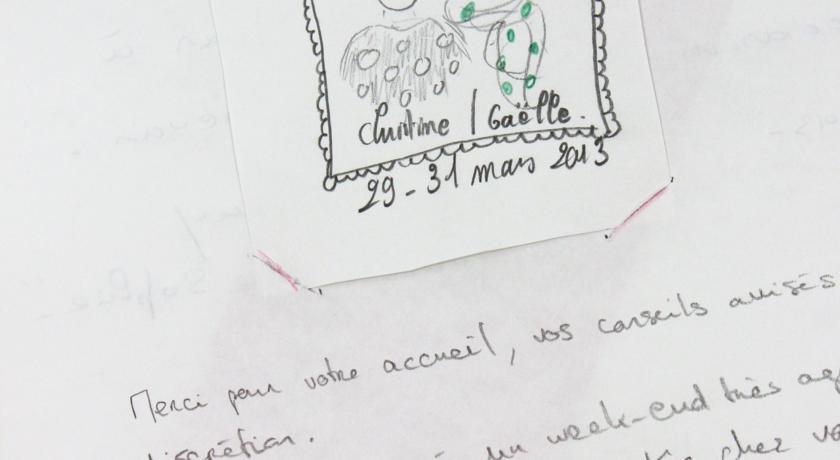 Christine / Gaëlle.
29 - 31 mars 2013
Merci pour votre accueil, vos conseils avisés
discrétion.
un week-end très
chez